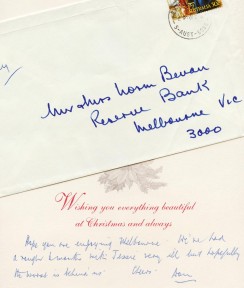 Mr & Mrs Norm Bevan
Reserve Bank
Melbourne Vic
3000
Wishing you everything beautiful
at Christmas and always
Hope you are enjoying Melbourne We've had
a rough 2 months with very ill but hopefully
the worst is behind us.